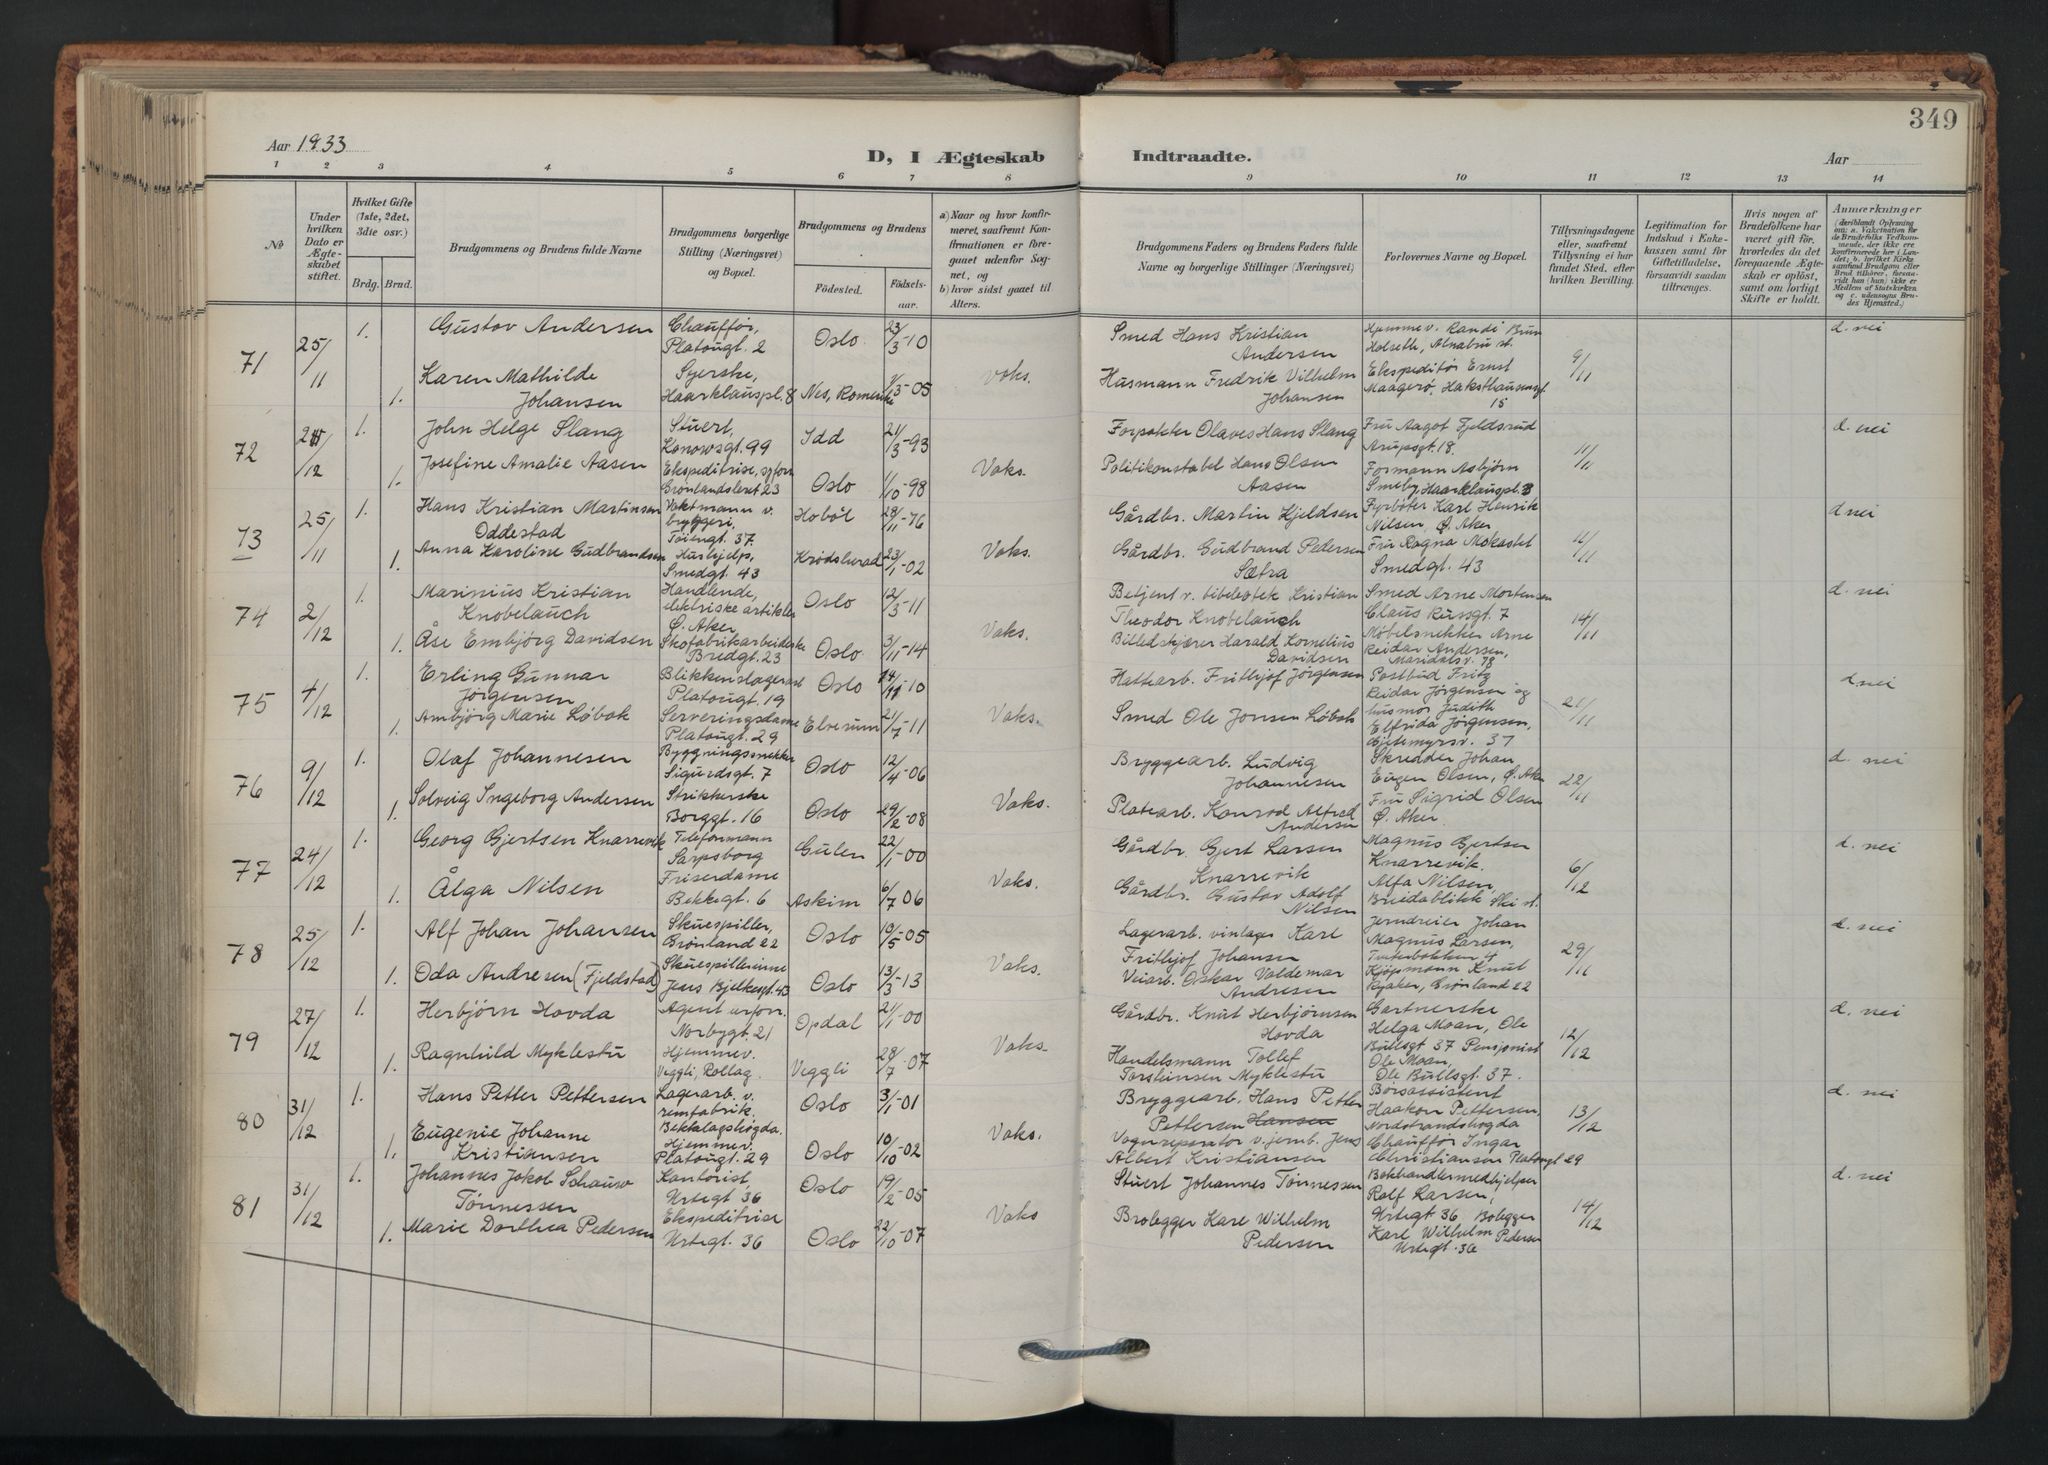 349
Aar 1933
D, I Ægteskab Indtraadte.
Aar
1 2 3 4 5 6 7 8 9 10 11 12 13 14
No
Under hvilken Dato er Ægteskabet stiftet.
Hvilket Gifte (1ste, 2det, 3die osv.)
Brdg. Brud.
Brudgommens og Brudens fulde Navne
Brudgommens borgerlige Stilling (Næringsvei) og Bopæl.
Brudgommens og Brudens
Fødested. Fødselsaar.
a) Naar og hvor konfirmeret, saafremt Konfirmationen er foregaaet udenfor Sognet, og
b) hvor sidst gaaet til Alters.
Brudgommens Faders og Brudens Faders fulde Navne og borgerlige Stillinger (Næringsvei)
Forlovernes Navne og Bopæl.
Tillysningsdagene eller, saafremt Tillysning ei har fundet Sted, efter hvilken Bevilling.
Legitimation for Indskud i Enkekassen samt for Giftetilladelse, forsaavidt saadan tiltrænges.
Hvis nogen af Brudefolkene har været gift før, hvorledes da det foregaaende Ægteskab er opløst, samt om lovligt Skifte er holdt.
Anmærkninger (deriblandt Oplysning om: a. Vakcination for de Brudefolks Vedkommende, der ikke ere konfirmerede her i Landet; b. hvilket Kirkesamfund Brudgom eller Brud tilhører, forsaavidt han (hun) ikke er Medlem af Statskirken og c. udensogns Brudes Hjemsted.)
71 25/11 1. Gustav Andersen Chauffør, Platougt. 2 Oslo 23/3-10
Smed Hans Kristian Andersen
Hjemmev. Randi Brun Holseth, Alnabru st.
9/11 d. nei
1. Karen Mathilde Johansen Syerske, Haarklauspl. 8 Nes, Romerike /3-05 Voks.
Husmann Fredrik Vilhelm Johansen
Ekspeditør Ernst Maagerø, Haksthausensgt 15
72 /12 1. John Helge Slang Stuert, Konowsgt. 99 Idd 21/3-93
Forpakter Olaves Hans Slang
Fru Aagot Fjeldsrud Arupsgt. 18.
11/11 d. nei
1. Josefine Amalie Aasen Ekspeditrise, Grønlandsleret 23 Oslo 1/10-98 Voks.
Politikonstabel Hans Olsen Aasen
Formann Asbjörn Smeby, Haarklauspl. 3
73 25/11 1. Hans Kristian Martinsen Oddestad Vaktmann v. bryggeri, Töiengt. 37. Hoböl 28/11-76
Gårdbr. Martin Kjeldsen
Fyrbøter Karl Henrik Nilsen, Ø. Aker
11/11 d nei
1. Anna Karoline Gudbrandsen Hushjelp, Smedgt. 43 Krødsherad 23/1-02 Voks.
Gårdbr. Gudbrand Pedersen Sætra
Fru Ragna Mokastet Smedgt. 43
74 2/12 1. Marinius Kristian Knobelauch Handlende, elektriske artikler Ø. Aker Oslo 12/3-11
Betjent v. bibeleotek Kristian Theodor Knobelauch
Smed Arne Mortensen Claus Riisgt. 7
14/11 d. nei
1. Åse Embjörg Davidsen Skofabrikarbeiderske Bredgt. 23 Oslo 3/11-14 Voks.
Billedskjærer Harald Kornelius Davidsen
Møbelsnekker Arne Reidar Andersen, Maridalsv. 78
75 4/12 1. Erling Gunnar Jörgensen Blikkenslagerarb Platougt. 19 Oslo 14/11-10
Hattearb. Frithjof Jörgensen
Postbud Fritz Reidar Jörgensen og husmor Judith Elfrida Jörgensen, Gjetemyrsv. 37
21/11 d nei
1. Ambjörg Marie Löbak Serveringsdame Platougt. 29 Elverum 21/7-11 Voks.
Smed Ole Jonsen Löbak
76 9/12 1. Olaf Johannesen Byggningssnekker Sigurdsgt. 7 Oslo 12/4-06
Bryggearb. Ludvig Johannesen
Skredder Johan Eugen Olsen, Ø. Aker
22/11 d. nei
1. Solveig Ingeborg Andersen Strikkerske Borggt. 16 Oslo 29/2-08 Voks.
Platearb. Konrad Alfred Andersen
Fru Sigrid Olsen Ø. Aker
77 24/12 1. Georg Gjertsen Knarrevik Telefonmann Sarpsborg Gulen 22/1-00
Gårdbr. Gjert Larsen Knarrevik
Magnus Gjertsen Knarrevik.
6/12 d. nei
1. Ålga Nilsen Friserdame Bekkegt. 6 Askim 6/7 06 Voks.
Gårdbr. Gustav Adolf Nilsen
Alfa Nilsen, Breidablikk Ski st.
78 25/12 1. Alf Johan Johansen Skuespiller, Grønland 22 Oslo 10/5-05
Lagerarb. vinlager Karl Frithjof Johansen
Jerndreier Johan Magnus Larsen,
29/11 d. nei
1. Oda Andresen (Fjeldstad) Skuespillerinne Jens Bjelkesgt. 43 Oslo 13/3-13 Voks.
Veiarb. Oskar Valdemar Andresen
Kjøpmann Knut Grønland 22
79 27/12 1. Herbjörn Hovda Agent Norbygt. 21 Opdal 21/1-00
Gårdbr. Knut Herbjörnsen Hovda
Gartnerske Helga Moan, Ole Bullsgt 37 Pensjonist Ole Moan, Ole Bullsgt. 37.
12/12 d. nei
1. Ragnhild Myklestu Hjemmev. Veggli, Rollag. Veggli 28/7-07 Voks.
Handelsmann Tollef Torsteinsen Myklestu
80 31/12 1. Hans Petter Pettersen Lagerarb. v. remfabrik. Bekkelagshøgda. Oslo 3/1-01
Bryggearb. Hans Petter Pettersen Hansen
Børsassistent Haakon Pettersen, Nordstrandshøgda
13/12 d. nei
1. Eugenie Johanne Kristiansen Hjemmev. Platougt. 29 Oslo 10/10-02 Voks.
Vognreparatør v. jernb. Jens Albert Kristiansen
Chauffør Ingar Christiansen Platougt 29
81 31/12 1. Johannes Jakob Schauw Tönnessen Kontorist, Urtegt. 36 Oslo 19/2-05
Stuert Johannes Tönnessen
Bokhandlermedhjelper Rolf Larsen, Urtegt 36
14/12 d. nei
1. Marie Dorthea Pedersen Ekspeditrise Urtegt. 36 Oslo 22/10-07 Voks
Brolegger Karl Wilhelm Pedersen
Bolegger Karl Wilhelm Pedersen Urtegt. 36